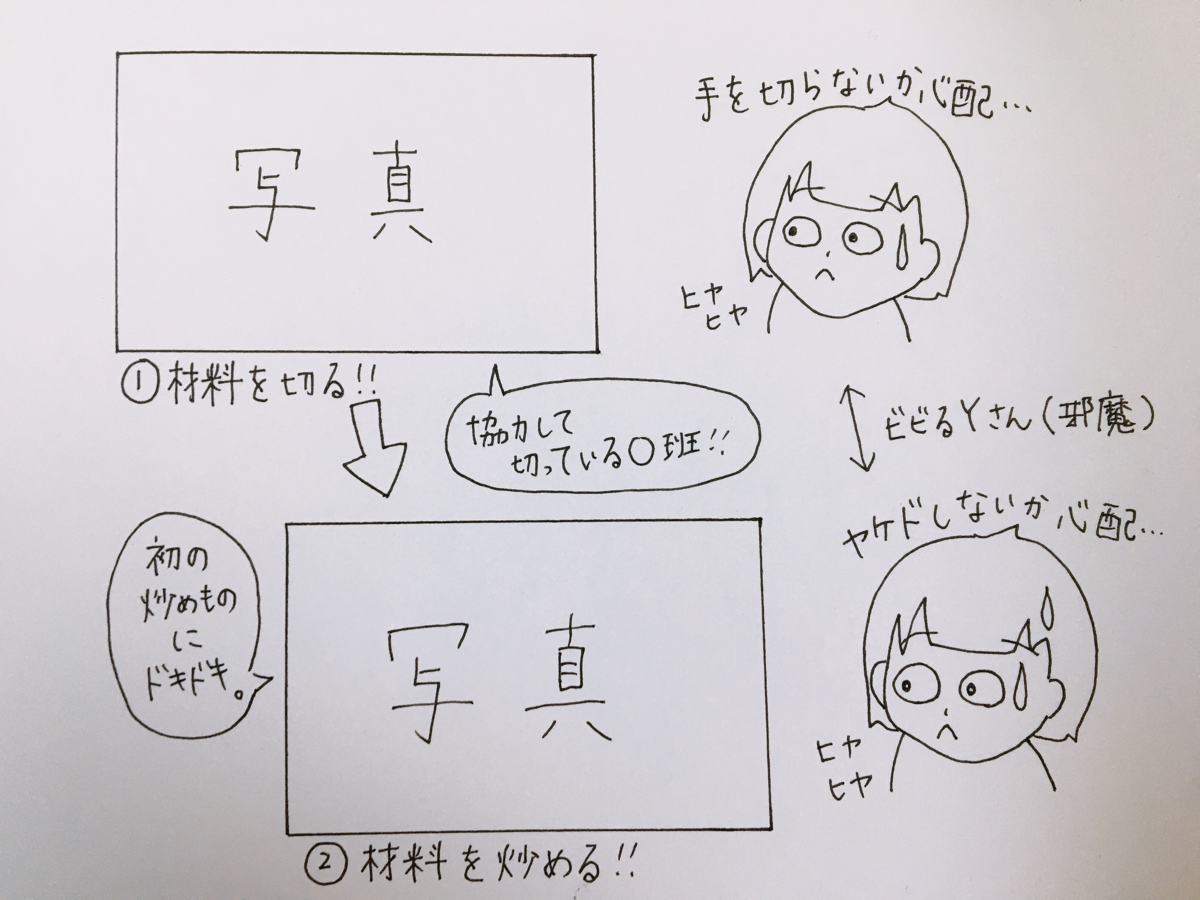 写真
手を切らないか心配…
ヒヤ
ヒヤ
①材料を切る!!
協力して
切っている〇班!!
ビビるYさん(邪魔)
初の
炒めもの
に
ドキドキ。
写真
ヤケドしないか心配…
ヒヤ
ヒヤ
②材料を炒める!!